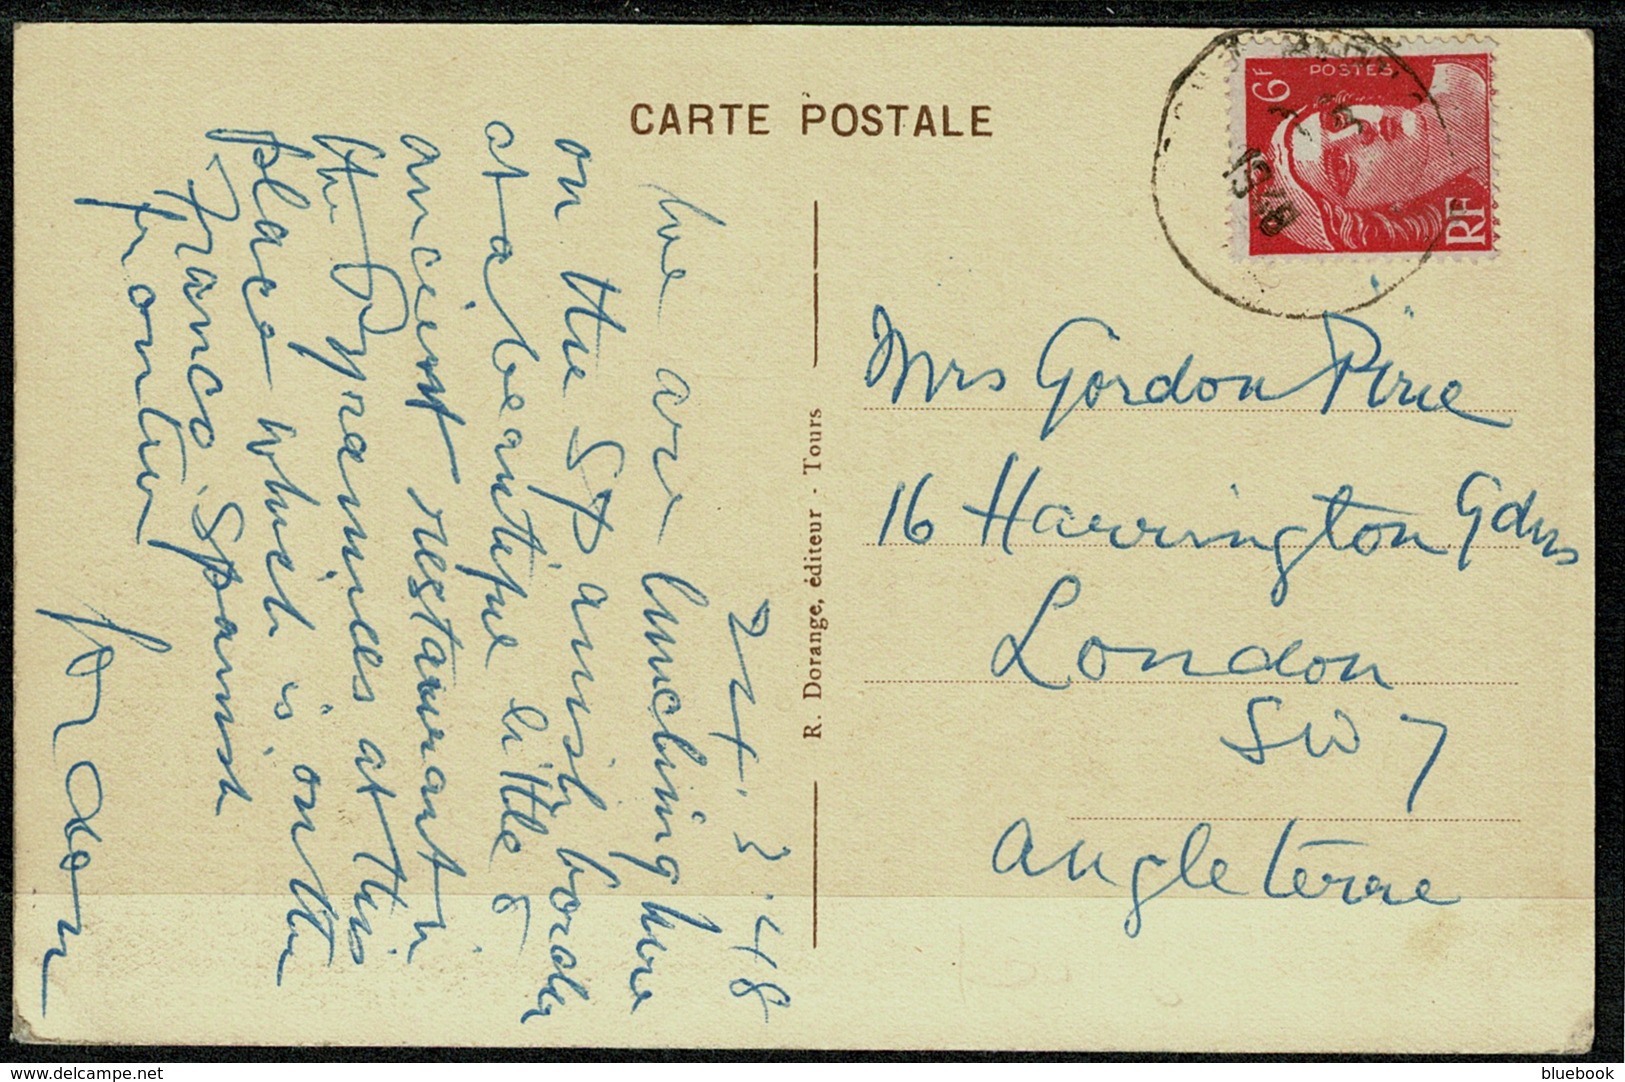 CARTE POSTALE
POSTES
6F
RF
1948
24.3.48
We are lunching here
on the Spanish border
at a beautiful little &
ancient restaurant in
the Pyrannees at this
place which is on the
Franco Spanish
frontier
Gordon
R. Dorange, éditeur - Tours
Mrs Gordon Pirie
16 Harrington Gdns
London
SW 7
Angleterre
delcampe.net
bluebook